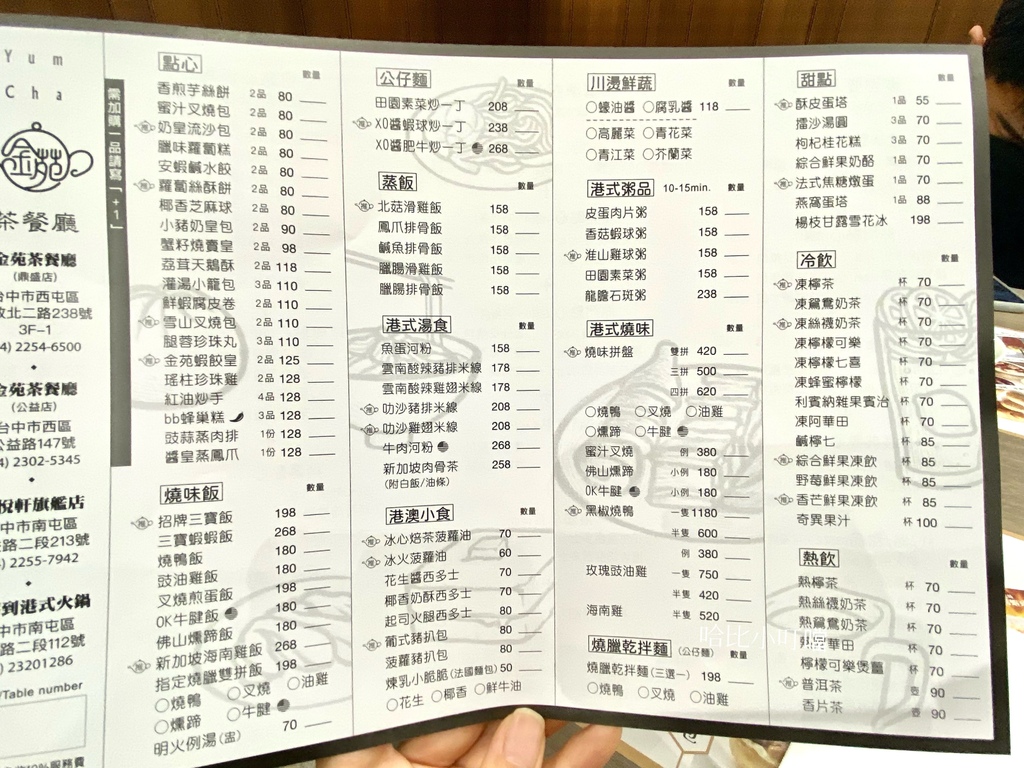 Yum
Cha
金苑
茶餐廳
金苑茶餐廳
(鼎盛店)
台中市西屯區
北二路238號
3F-1
4) 2254-6500
金苑茶餐廳
(公益店)
台中市西屯區
公益路147號
4) 2302-5345
悅軒旗艦店
中市南屯區
路二段213號
) 2255-7942
到港式火鍋
中市南屯區
路二段112號
) 23201286
/Table number
10%服務費
需加購一品請寫「+1」
點心 數量
香煎芋絲餅 2品 80
蜜汁叉燒包 2品 80
推 奶皇流沙包 2品 80
臘味蘿蔔糕 2品 80
安蝦鹹水餃 2品 80
推 蘿蔔絲酥餅 2品 80
椰香芝麻球 2品 80
小豬奶皇包 2品 90
蟹籽燒賣皇 2品 98
荔茸天鵝酥 2品 118
灌湯小籠包 3品 110
鮮蝦腐皮卷 2品 110
推 雪山叉燒包 2品 110
腿蓉珍珠丸 3品 110
推 金苑蝦餃皇 2品 125
瑤柱珍珠雞 2品 128
紅油炒手 4品 128
bb蜂巢糕 3品 128
豉蒜蒸肉排 1份 128
醬皇蒸鳳爪 1份 128
燒味飯 數量
推 招牌三寶飯 198
三寶蝦蝦飯 268
燒鴨飯 180
豉油雞飯 180
叉燒煎蛋飯 198
OK牛腱飯 180
佛山燻蹄飯 180
推 新加坡海南雞飯 268
指定燒臘雙拼飯 198
○燒鴨 ○叉燒 ○油雞
○燻蹄 ○牛腱
明火例湯(盅) 70
公仔麵 數量
田園素菜炒一丁 208
推 XO醬蝦球炒一丁 238
XO醬肥牛炒一丁 268
蒸飯 數量
推 北菇滑雞飯 158
鳳爪排骨飯 158
鹹魚排骨飯 158
臘腸滑雞飯 158
臘腸排骨飯 158
港式湯食 數量
魚蛋河粉 158
雲南酸辣豬排米線 178
雲南酸辣雞翅米線 178
推 叻沙豬排米線 208
推 叻沙雞翅米線 208
牛肉河粉 268
新加坡肉骨茶 258
(附白飯/油條)
港澳小食 數量
推 冰心焙茶菠蘿油 70
推 冰火菠蘿油 60
花生醬西多士 70
椰香奶酥西多士 70
起司火腿西多士 80
推 葡式豬扒包 80
菠蘿豬扒包 80
煉乳小脆脆(法國麵包) 50
○花生 ○椰香 ○鮮牛油
川燙鮮蔬 數量
○蠔油醬 ○腐乳醬 118
○高麗菜 ○青花菜
○青江菜 ○芥蘭菜
港式粥品 10-15min. 數量
皮蛋肉片粥 158
香菇蝦球粥 158
推 淮山雞球粥 158
田園素菜粥 158
龍膽石斑粥 238
港式燒味 數量
推 燒味拼盤 雙拼 420
三拼 500
四拼 620
○燒鴨 ○叉燒 ○油雞
○燻蹄 ○牛腱
蜜汁叉燒 例 380
佛山燻蹄 小例 180
OK牛腱 小例 180
推 黑椒燒鴨 一隻 1180
半隻 600
例 380
玫瑰豉油雞 一隻 750
半隻 420
海南雞 半隻 520
燒臘乾拌麵 (公仔麵) 數量
燒臘乾拌麵(三選一) 198
○燒鴨 ○叉燒 ○油雞
甜點 數量
推 酥皮蛋塔 1品 55
擂沙湯圓 3品 70
枸杞桂花糕 3品 70
綜合鮮果奶酪 1品 70
推 法式焦糖燉蛋 1品 70
燕窩蛋塔 1品 88
楊枝甘露雪花冰 198
冷飲 數量
推 凍檸茶 杯 70
凍鴛鴦奶茶 杯 70
推 凍絲襪奶茶 杯 70
凍檸檬可樂 杯 70
凍檸檬七喜 杯 70
凍蜂蜜檸檬 杯 70
利賓納雜果賓治 杯 70
凍阿華田 杯 70
鹹檸七 杯 85
推 綜合鮮果凍飲 杯 85
野莓鮮果凍飲 杯 85
推 香芒鮮果凍飲 杯 85
奇異果汁 杯 100
熱飲 數量
熱檸茶 杯 70
熱絲襪奶茶 杯 70
熱鴛鴦奶茶 杯 70
華田 杯 70
檸檬可樂煲薑 杯 70
推 普洱茶 壺 90
香片茶 壺 90